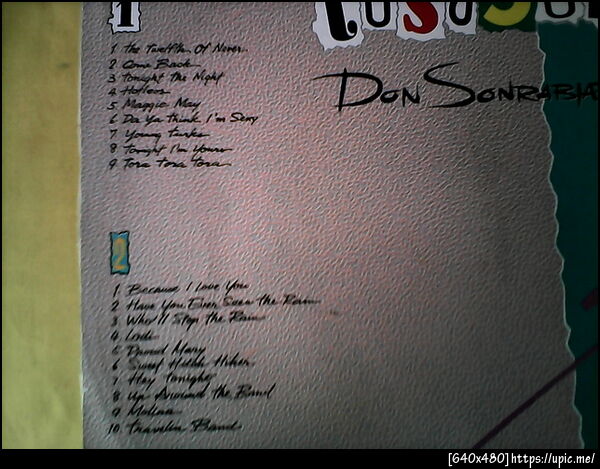 1
1 The Twelfth Of Never
2 Come Back
3 Tonight the Night
4 Hotlegs
5 Maggie May
6 Da Ya think I'm Sexy
7 Young turks
8 Tonight I'm Yours
9 Tora tora tora
DON SONRABIA
2
1 Because I Love You
2 Have You Ever Seen the Rain
3 Who'll Stop the Rain
4 Lodi
5 Proud Mary
6 Sweet Hitch Hiker
7 Hey Tonight
8 Up Around the Band
9 Molina
10. Travelin Band
[640x480]https://upic.me/